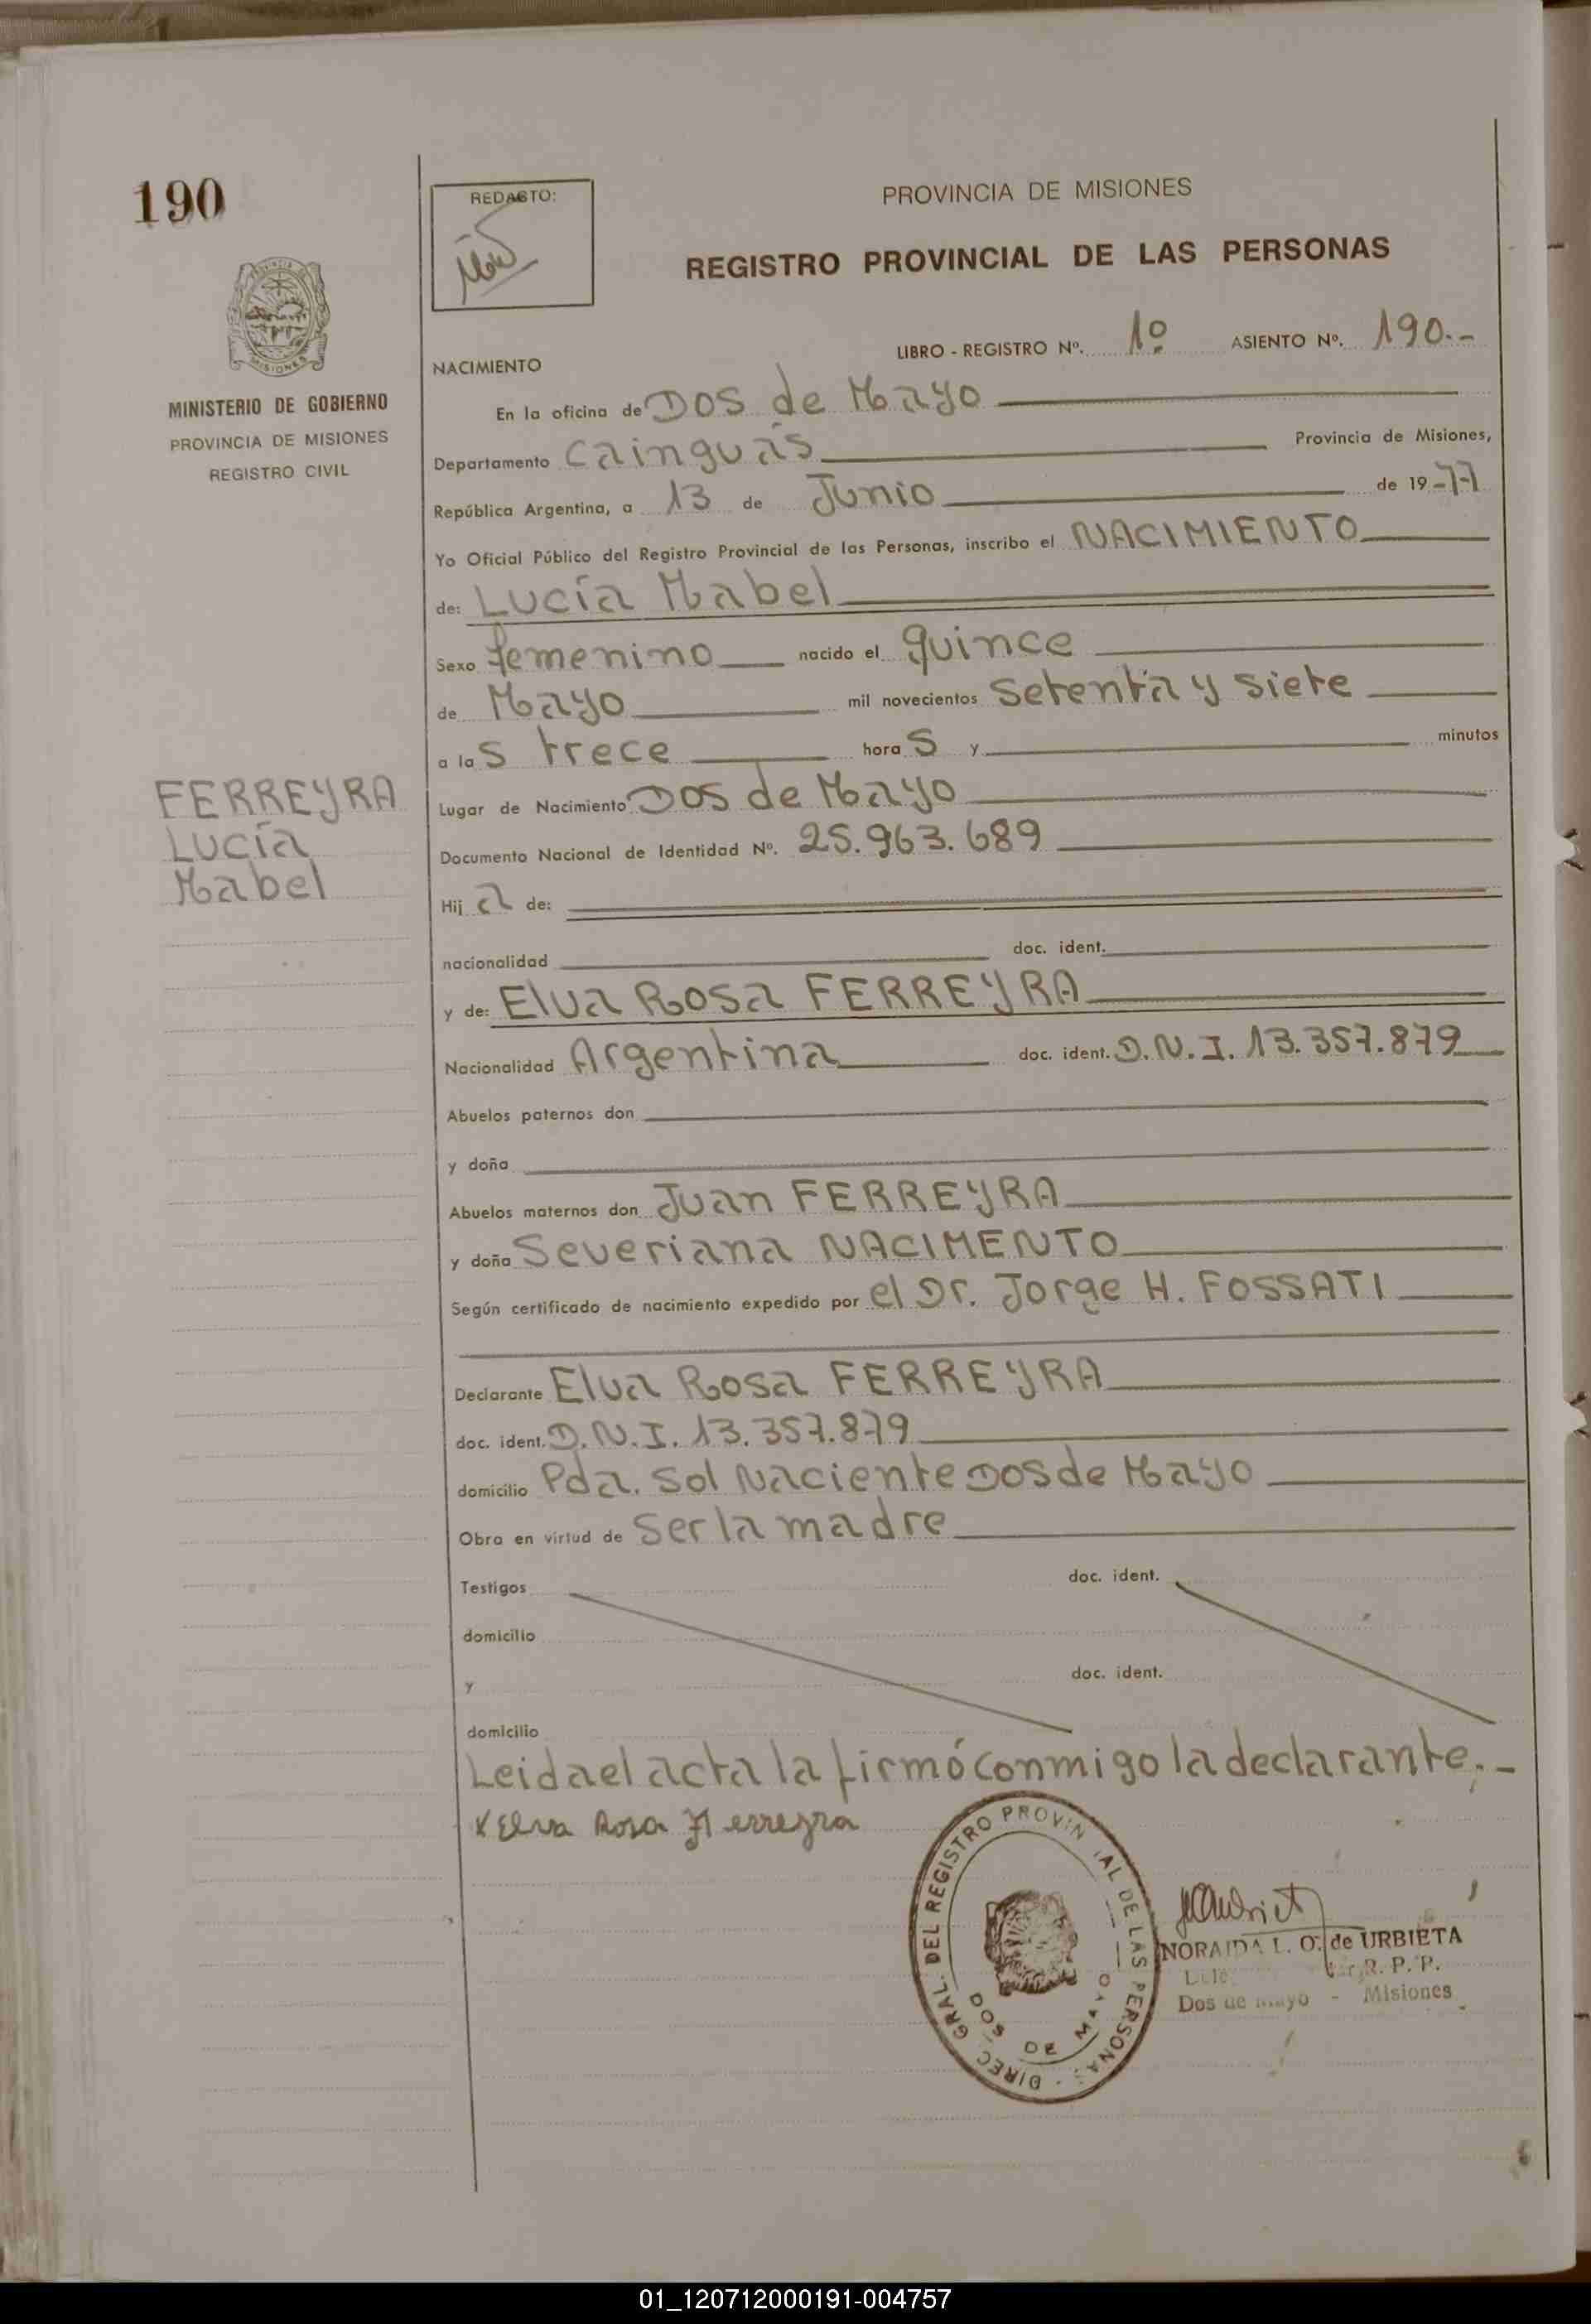 190
REDACTO:
PROVINCIA DE MISIONES
REGISTRO PROVINCIAL DE LAS PERSONAS
MINISTERIO DE GOBIERNO
PROVINCIA DE MISIONES
REGISTRO CIVIL
LIBRO - REGISTRO Nº. 1º ASIENTO Nº. 190.-
NACIMIENTO
En la oficina de Dos de Mayo
Departamento Cainguás Provincia de Misiones,
República Argentina, a 13 de Junio de 19-77
Yo Oficial Público del Registro Provincial de las Personas, inscribo el NACIMIENTO
de: Lucía Mabel
Sexo femenino nacido el quince
de Mayo mil novecientos setenta y siete
a las trece horas y minutos
FERREYRA
Lucía
Mabel
Lugar de Nacimiento Dos de Mayo
Documento Nacional de Identidad Nº. 25.963.689
Hija de:
nacionalidad doc. ident.
y de: Elva Rosa FERREYRA
Nacionalidad Argentina doc. ident. D.N.I. 13.357.879
Abuelos paternos don
y doña
Abuelos maternos don Juan FERREYRA
y doña Severiana NACIMENTO
Según certificado de nacimiento expedido por el Dr. Jorge H. FOSSATI
Declarante Elva Rosa FERREYRA
doc. ident. D.N.I. 13.357.879
domicilio Pda. Sol Naciente Dos de Mayo
Obra en virtud de ser la madre
Testigos doc. ident.
domicilio
y doc. ident.
domicilio
Leida el acta la firmó conmigo la declarante.-
x Elva Rosa Ferreyra
DIREC. GRAL. DEL REGISTRO PROVINCIAL DE LAS PERSONAS
DOS DE MAYO
NORAIDA L. O. de URBIETA
R. P. P.
Dos de Mayo - Misiones
01_120712000191-004757